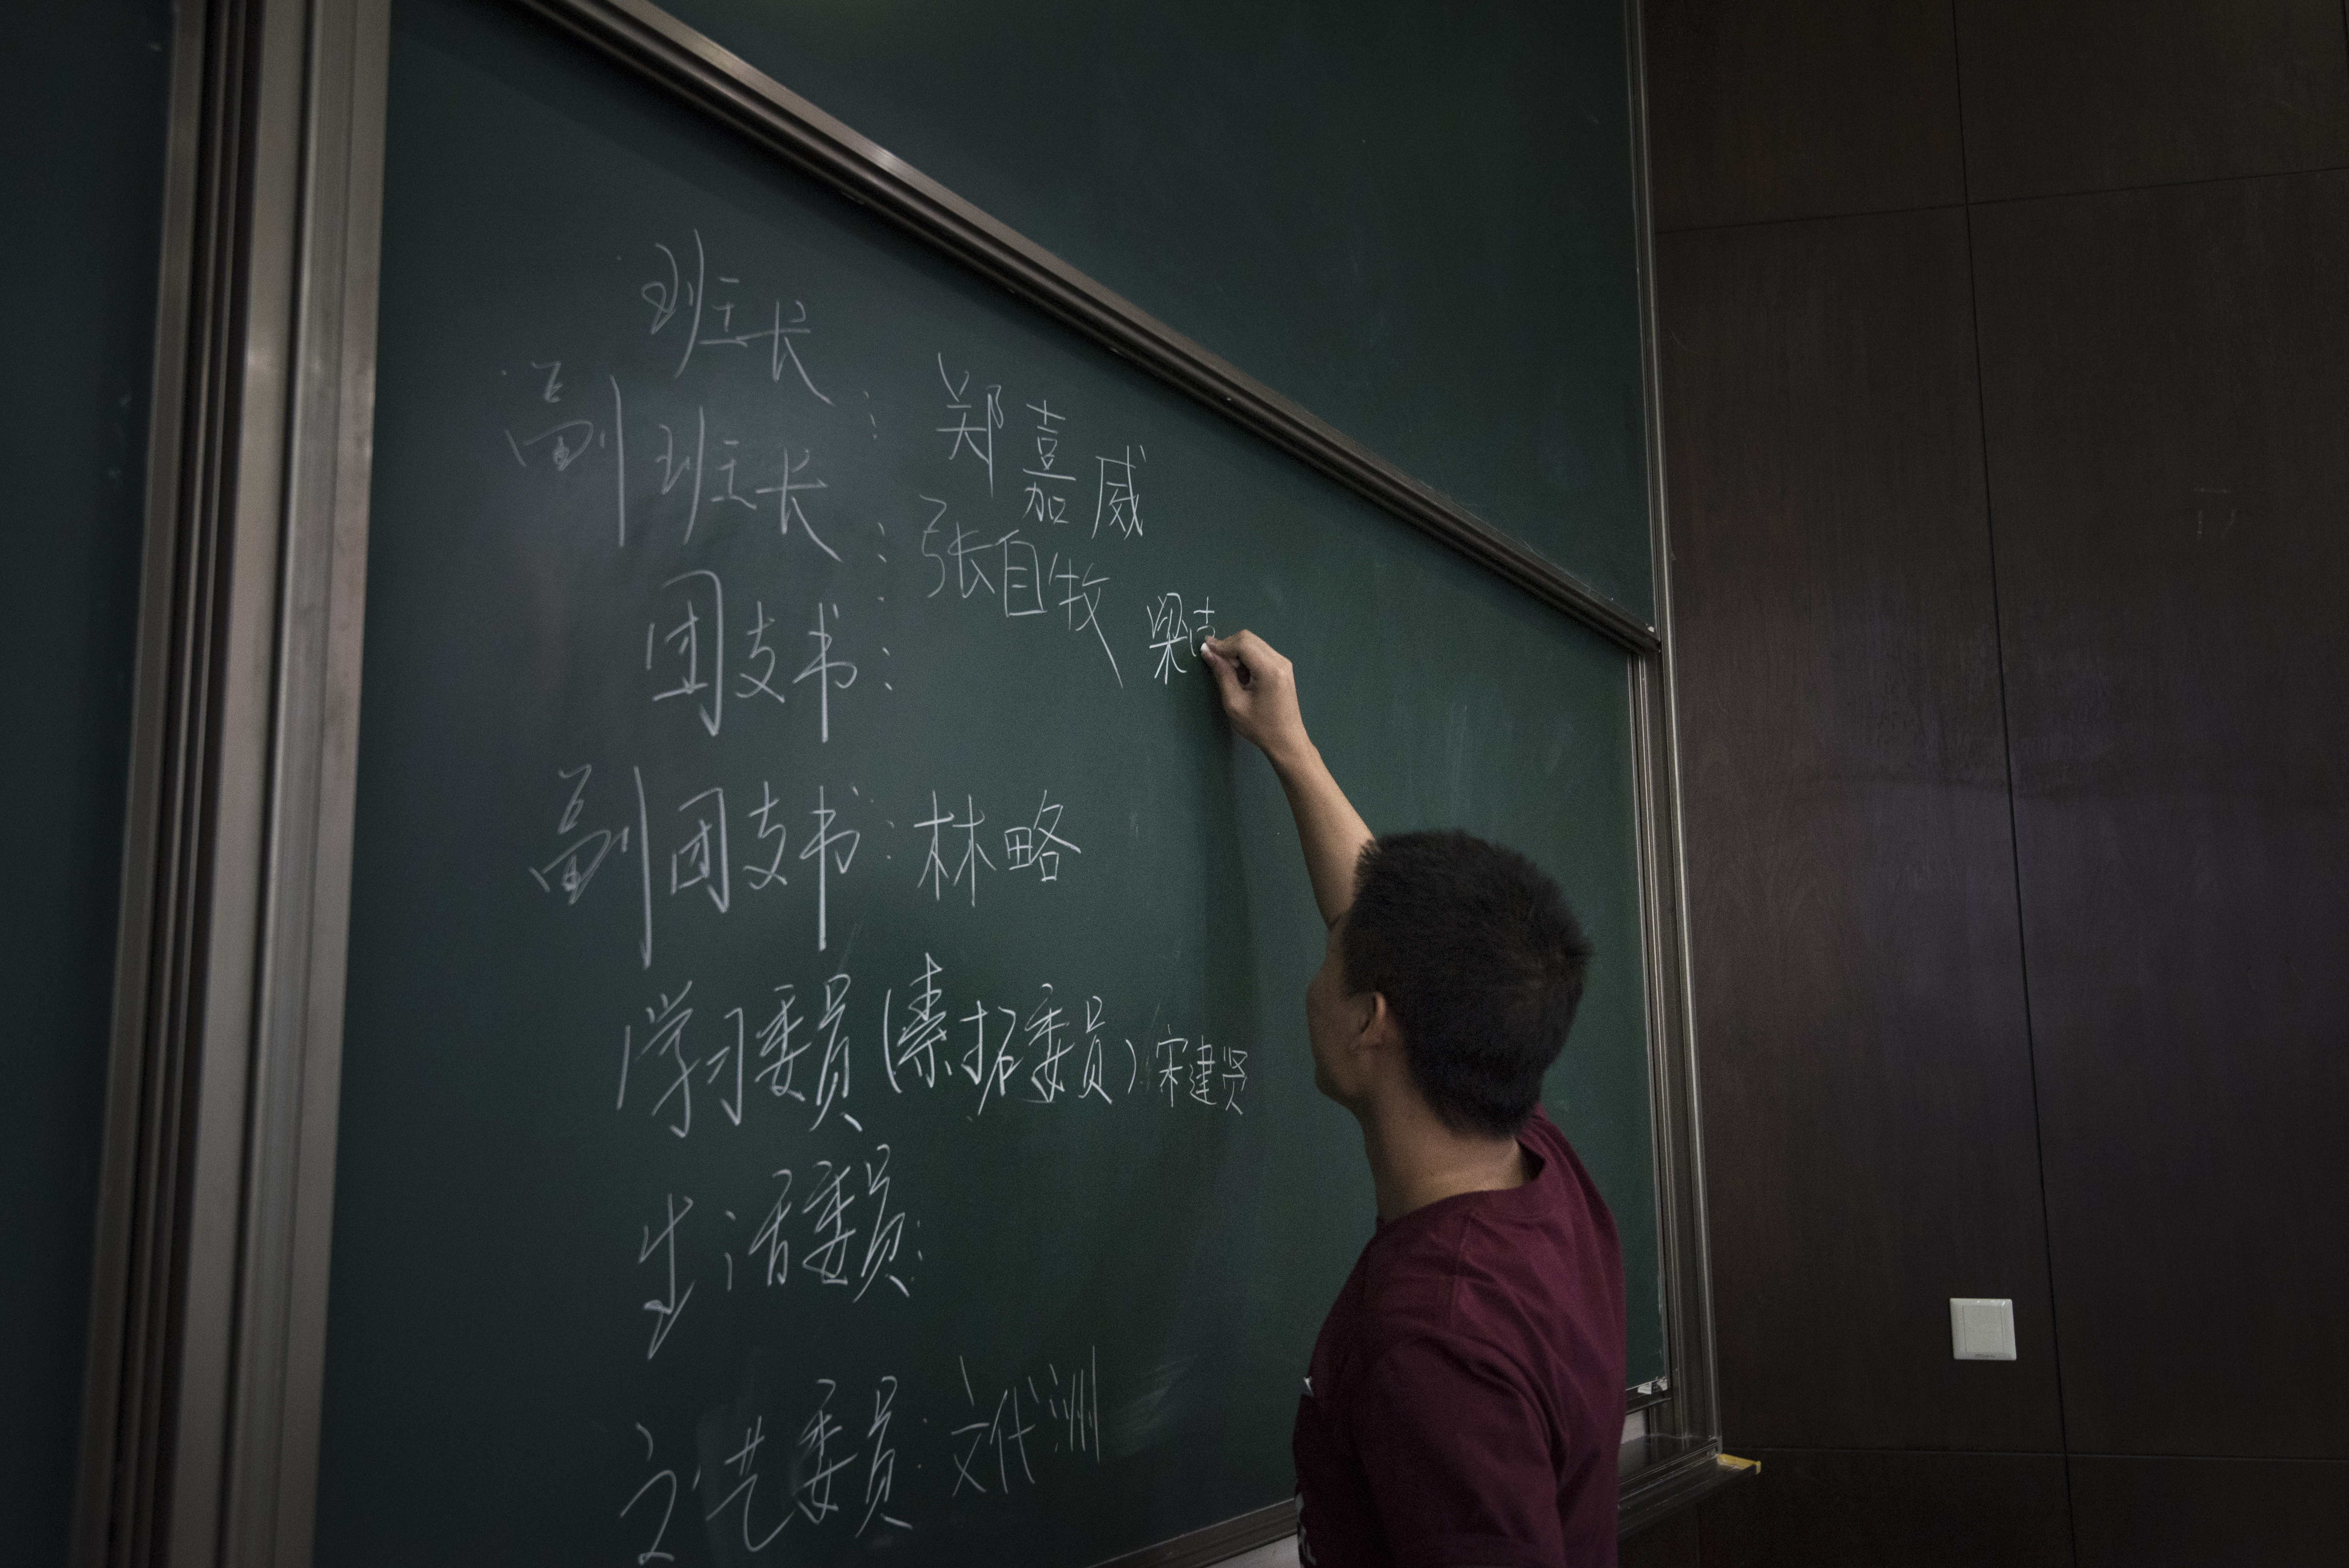 班长：郑嘉威
副班长：张自牧 梁
团支书：
副团支书：林略
学习委员（素拓委员）宋建贤
生活委员：
文艺委员：文代洲